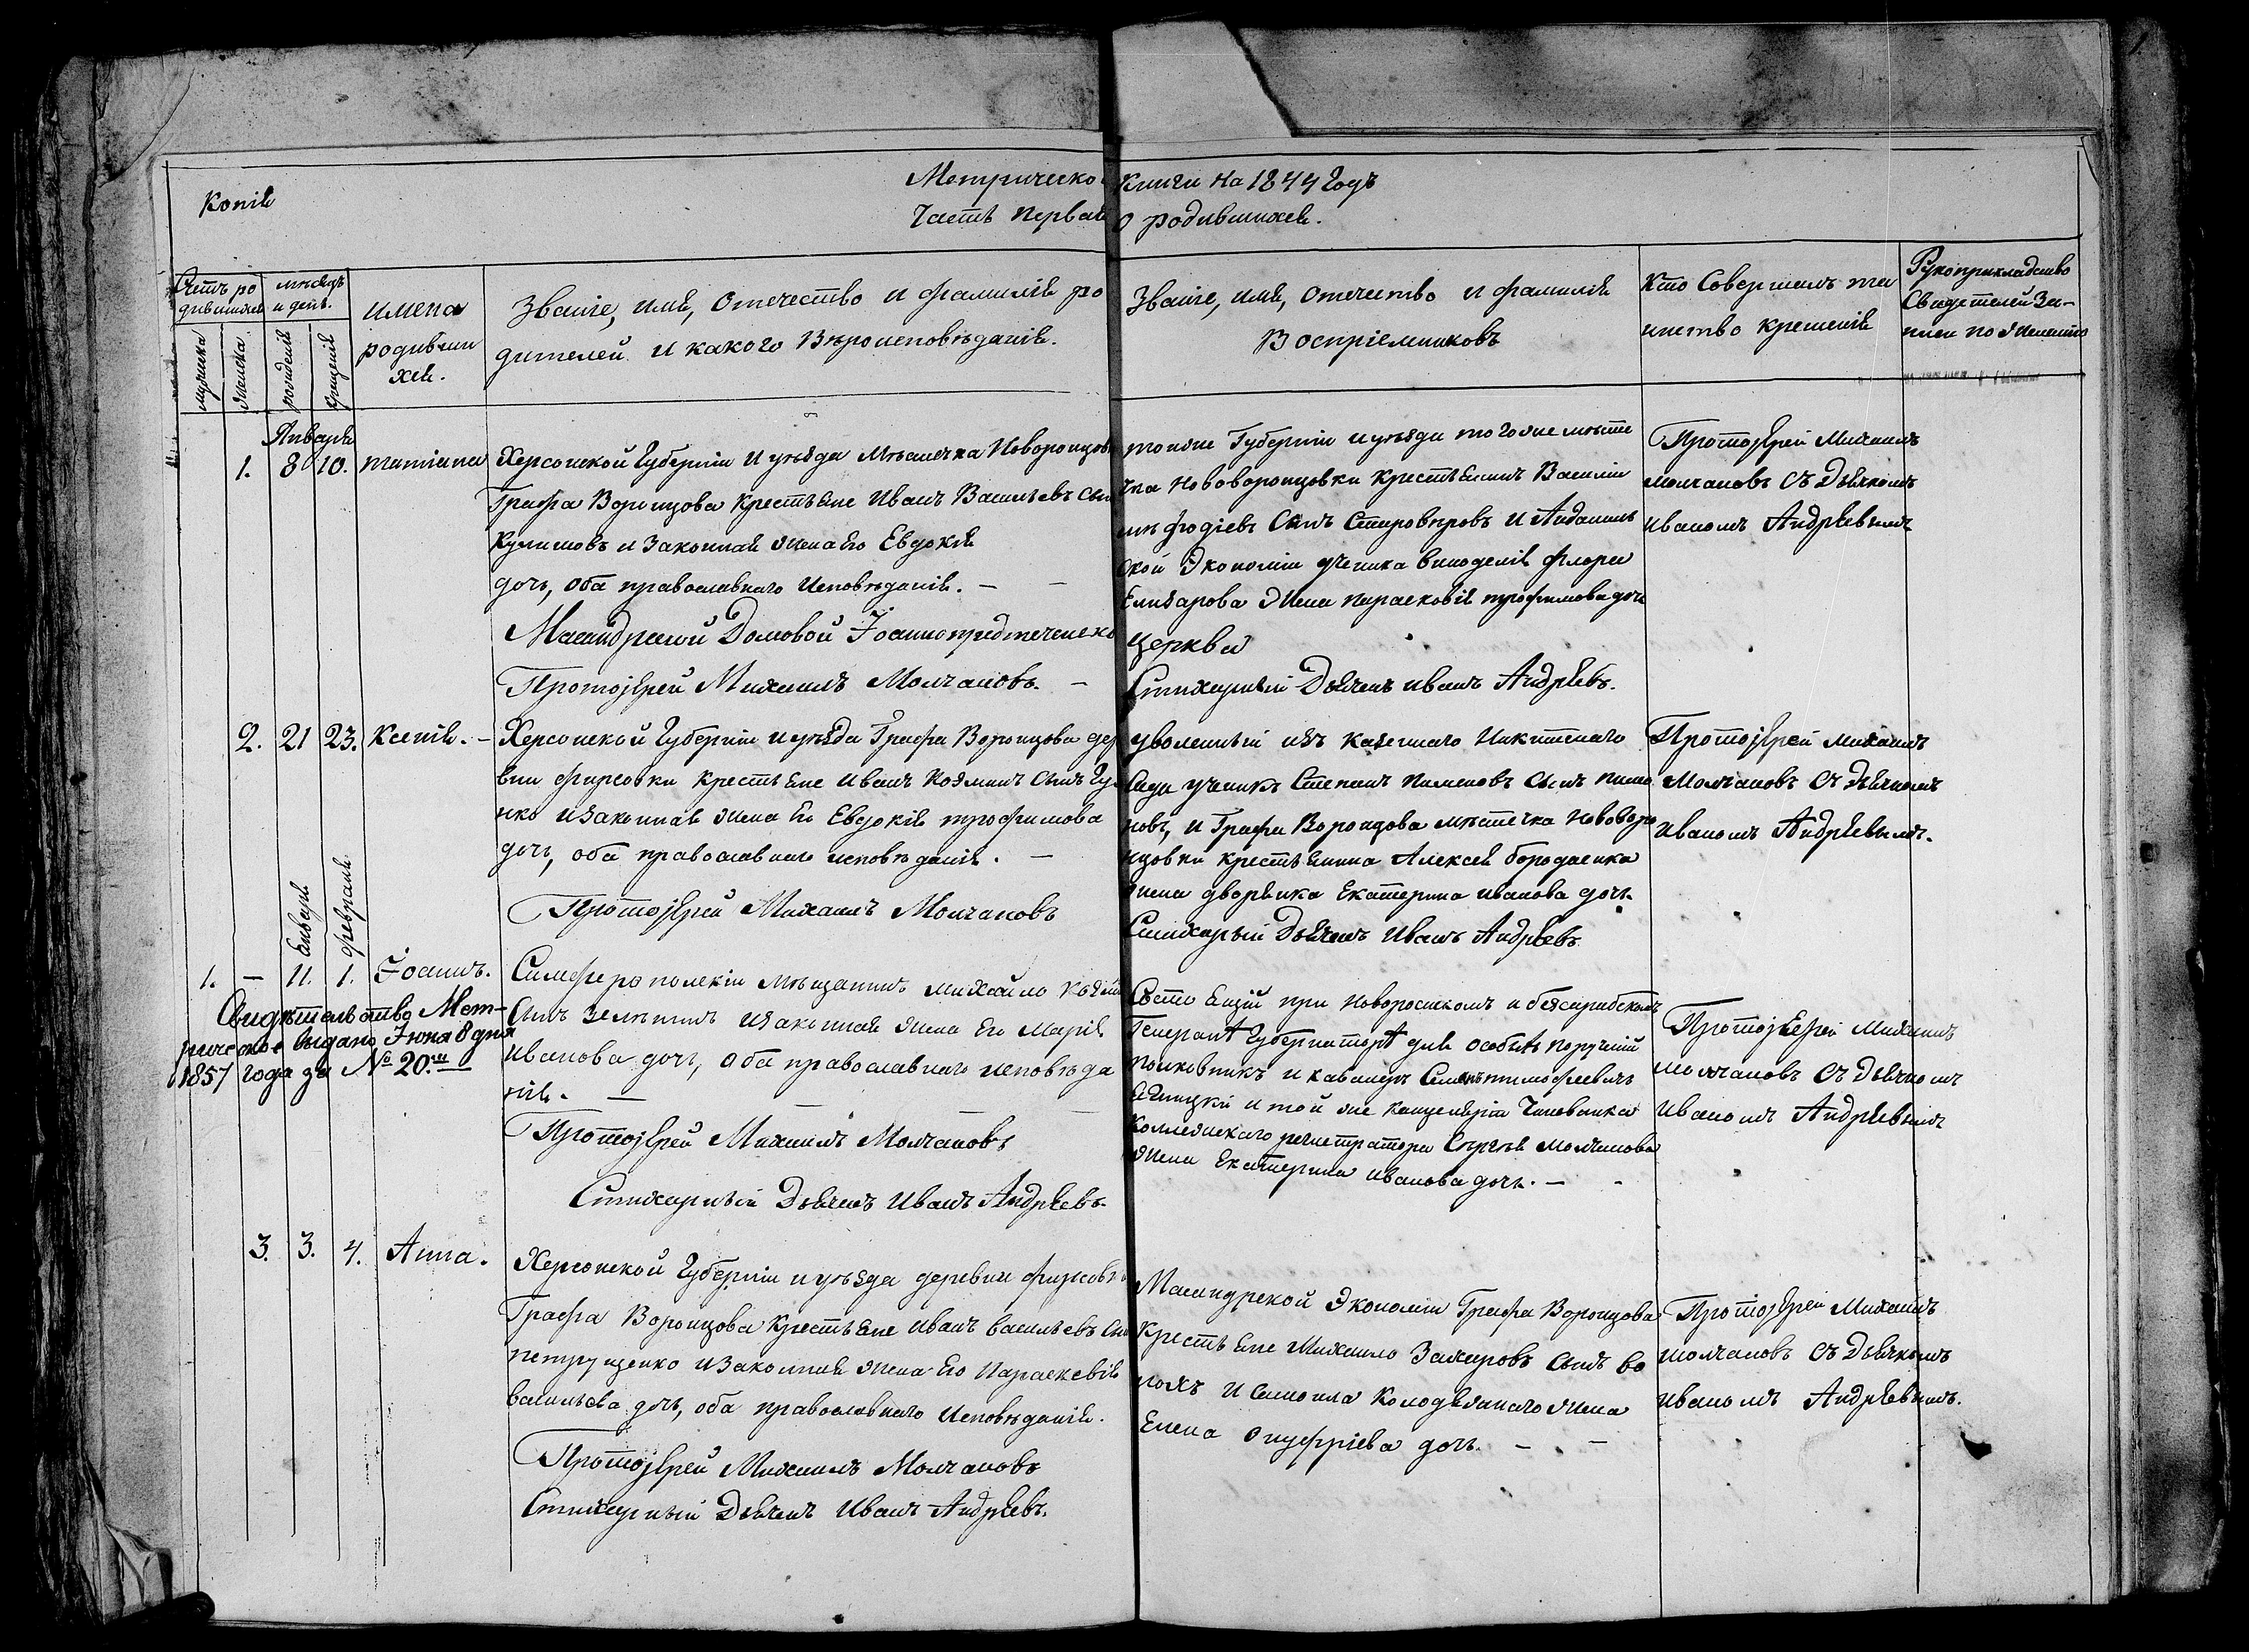 Копія
Метрической Книги на 1844 Годъ
Часть Первая о родившихся.
Счетъ ро
дившихся
мужеска
женска
мѣсяцъ
и день.
рожденія
крещенія
имена
родивши
хся.
Званіе, имя, Отечество и фамилія ро
дителей и какого Вѣроисповѣданія.
Званіе, имя, Отечество и фамилія
Воспріемниковъ
Кто Совершалъ та
инство крещенія
Рукоприкладство
Свидетелей За-
писи по желанію
Январь
1. 8 10. татіана
Херсонской Губерніи И уѣзда Мѣстечка Нововоронцовки
Графа Воронцова Крестьяне Иванъ Васильевъ Сынъ
и Законная жена Его Евдокія
дочь, Оба православнаго Исповѣданія. —
Масандрской Домовой Іоаннопредтеченской
Протоіерей Михаилъ Молчановъ. —
тойже Губерніи и уѣзда тогоже мѣсте
чка Нововоронцовки Крестьянинъ Василій
Сынъ Староверовъ И Айданиль
ской Экономіи ученика виноделія Флора
Елизарова Жена Парасковія трофимова дочь
Церкви
Стихарный Дьячекъ иванъ Андреевъ.
Протоіерей Михаилъ
Молчановъ Съ Дьячкомъ
иваномъ Андреевымъ
2. 21 23. Ксенія. —
Херсонской Губерніи и уѣзда Графа Воронцова дер
вни фирсовки крестьяне Иванъ Козминъ Сынъ
нко и Законная жена Его Евдокія трофимова
дочь, оба православнаго исповѣданія. —
Протоіерей Михаилъ Молчановъ
уволенный изъ казеннаго Никитскаго
Сада ученикъ Степанъ Пименовъ Сынъ пиме
новъ, и Графа Воронцова мѣстечка Нововоро
нцовки крестьянина Алексея бородаенка
жена дворянка Екатерина иванова дочь.
Стихарный Дьячекъ Иванъ Андреевъ
Протоіерей михаилъ
Молчановъ Съ Дьячкомъ
Иваномъ Андреевымъ.
Январь
февраль
1. — 11. 1. Іоаннъ.
Свидѣтельство Мет-
рическое выдано Іюня 8 дня
1857 года за № 20.
Симферополскій Мѣщанинъ михайло
Сынъ и законная жена Его Марія
Иванова дочь, Оба православнаго исповѣда
нія. —
Протоіерей Михаилъ Молчановъ
Стихарный Дьячекъ Иванъ Андреевъ.
Состоящій при Новоросискомъ и бессарабскомъ
Генералъ Губернаторѣ для особыхъ порученій
полковникъ и кавалеръ Семенъ тимофеевичъ
и той же канцеляріи Чиновника
Коллежскаго регистратора Сергѣя Молчанова
жена Екатерина иванова дочь. —
Протоіерей Михаилъ
молчановъ Съ Дьячкомъ
Иваномъ Андреевымъ
3. 3. 4. Анна.
Херсонской Губерніи и уѣзда деревни фирсовки
Графа Воронцова Крестьяне Иванъ васильевъ Сынъ
и Законная жена Его Параскевія
васильева дочь, оба православнаго Исповѣданія.
Протоіерей Михаилъ Молчановъ
Стихарный Дьячекъ Иванъ Андреевъ.
Масандрской Экономіи Графа Воронцова
Крестьяне Михайло Захаровъ Сынъ во
лохъ и самоила Колодяжнаго жена
Елена онуфріева дочь. —
Протоіерей Михаилъ
молчановъ Съ Дьячкомъ
иваномъ Андреевымъ.